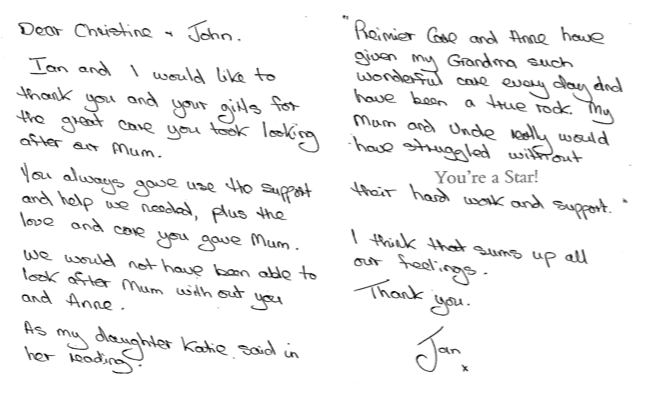 Dear Christine + John.
Ian and I would like to
thank you and your girls for
the great care you took looking
after our Mum.
You always gave use tho support
and help we needed, plus the
love and care you gave Mum.
We would not have been able to
look after Mum with out you
and Anne.
As my daughter Katie, said in
her reading.
"Reimier Care and Anne have
given my Grandma such
wonderful care every day and
have been a true rock. My
Mum and Uncle really would
have struggled without
You're a Star!
their hard work and support."
I think that sums up all
our feelings.
Thank you.
Jan
x